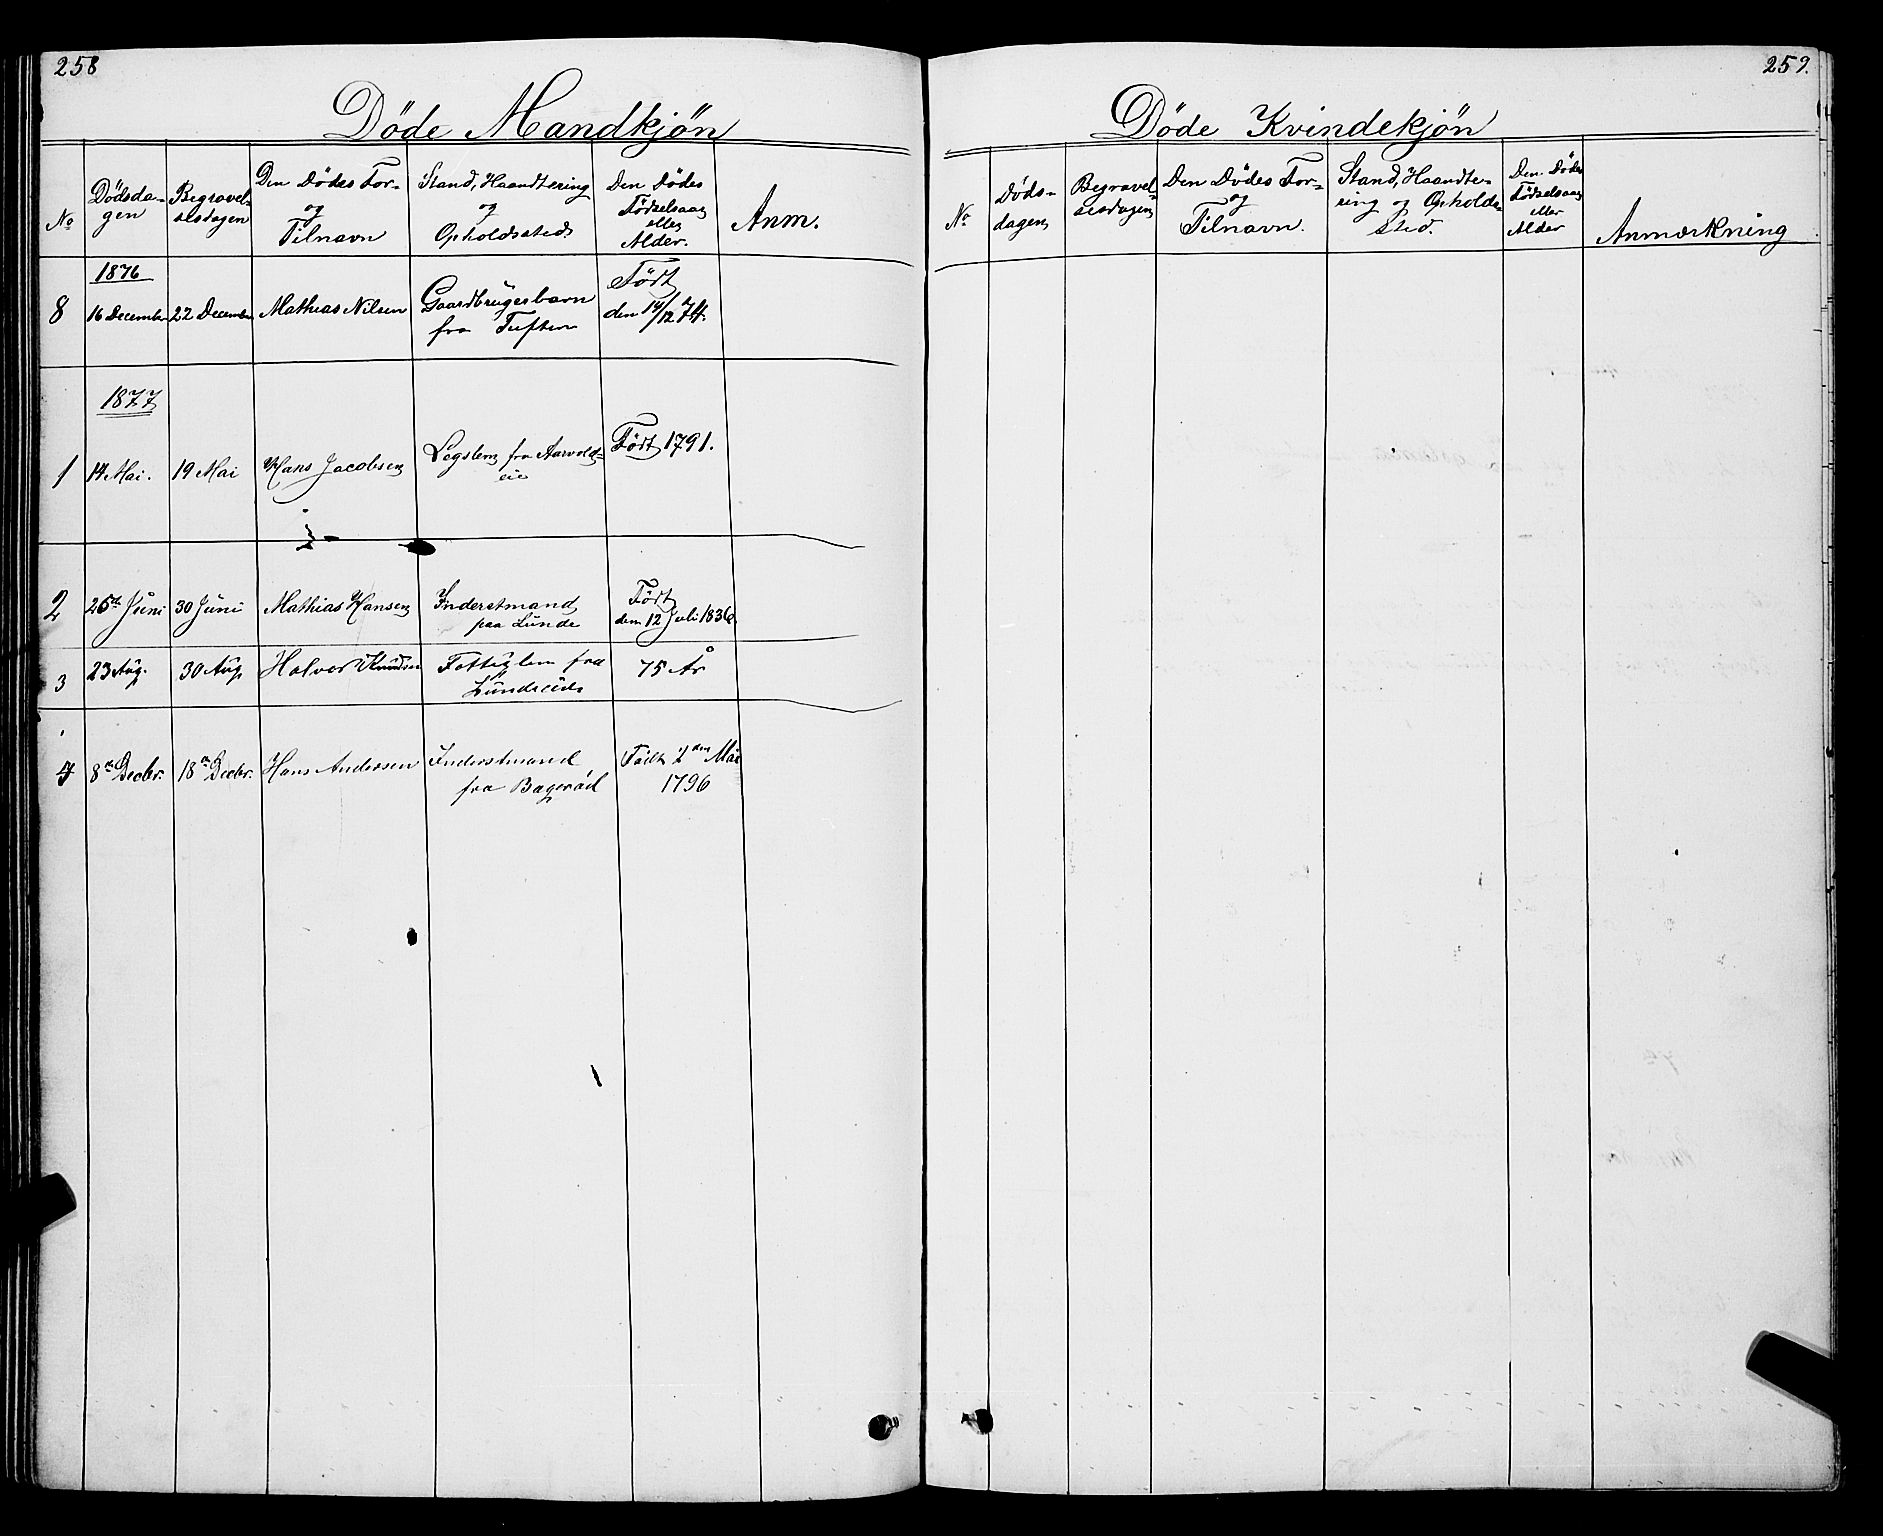 258
Døde Mandkjøn
No
Dødsda-
gen
Begravel-
sesdagen
Den Dødes For-
og
Tilnavn
Stand, Haandtering
og
Opholdssted
Den Dødes
Fødselsaar
eller
Alder.
Anm.
1876
8 16 December 22 December Mathias Nilsen Gaardbrugerbarn
fra Tuften
Født
den 14/12 74.
1877
1 14 Mai. 19 Mai Hans Jacobsen Legslem fra Aarvold-
eie
Født 1791.
2 25de Juni 30 Juni Mathias Hansen Inderstmand
paa Lunde
Født
den 12 Juli 1836
3 23 Aug. 30 Aug Halvor Knudsen Fattiglem fra
75 År
4 8de Decbr. 18de Decbr. Hans Andersen Inderstmand
fra Bagerød
Født 2den Mai
1796
259.
Døde Kvindekjøn
No
Døds-
dagen
Begravel-
sesdagen
Den Dødes For-
og
Tilnavn.
Stand, Haandte-
ring og Opholds-
sted.
Den Dødes
Fødselsaar
eller
Alder
Anmærkning